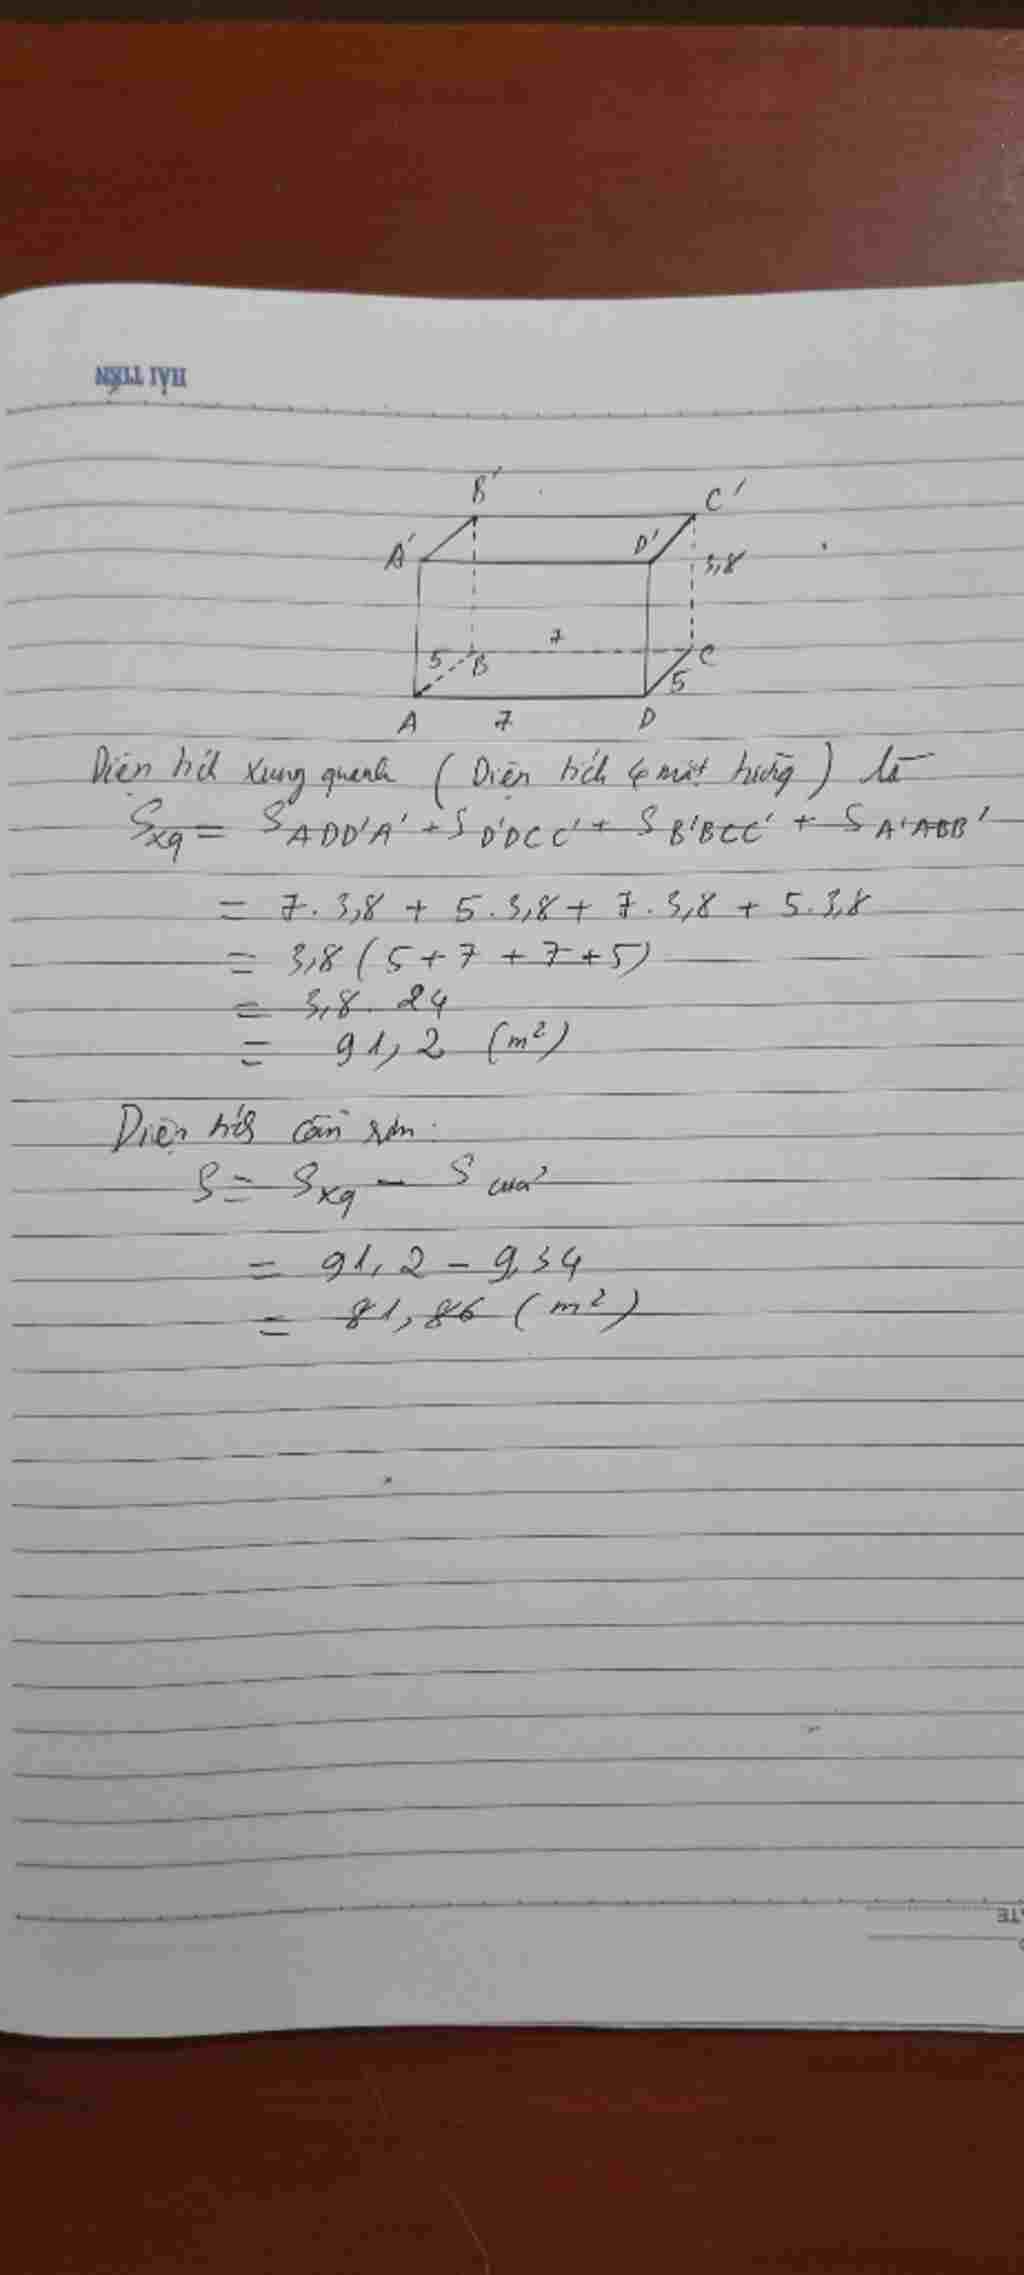 HẢI TIẾN
B'
C'
A'
D'
3,8
7
5
B
C
5
A
7
D
Diện tích xung quanh (Diện tích 4 mặt tường) là
Sxq = SADD'A' + SD'DCC' + SB'BCC' + SA'ABB'
= 7.3,8 + 5.3,8 + 7.3,8 + 5.3,8
= 3,8 (5+7+7+5)
= 3,8.24
= 91,2 (m²)
Diện tích cần sơn:
S = Sxq - S cửa
= 91,2 - 9,34
= 81,86 (m²)